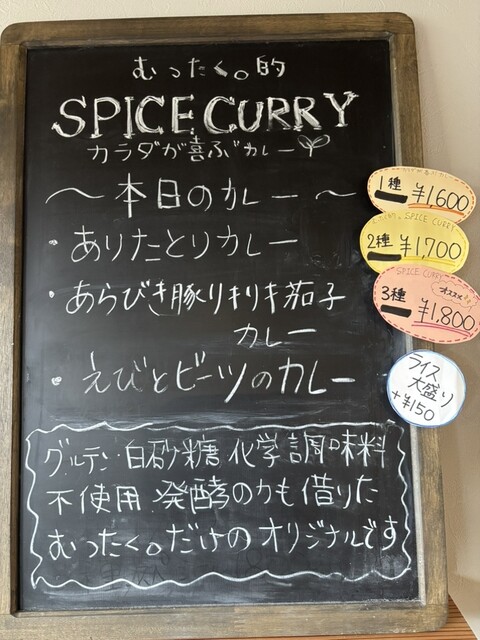 むったく。的
SPICE CURRY
カラダが喜ぶカレー
〜本日のカレー〜
・ありたとりカレー
・あらびき豚リキリキ茄子
カレー
・えびとビーツのカレー
グルテン・白砂糖 化学調味料
不使用 発酵の力も借りた
むったく。だけのオリジナルです
1種 ¥1,600
SPICE CURRY
2種 ¥1,700
SPICE CURRY
オススメ
3種 ¥1,800
ライス
大盛り
+¥150